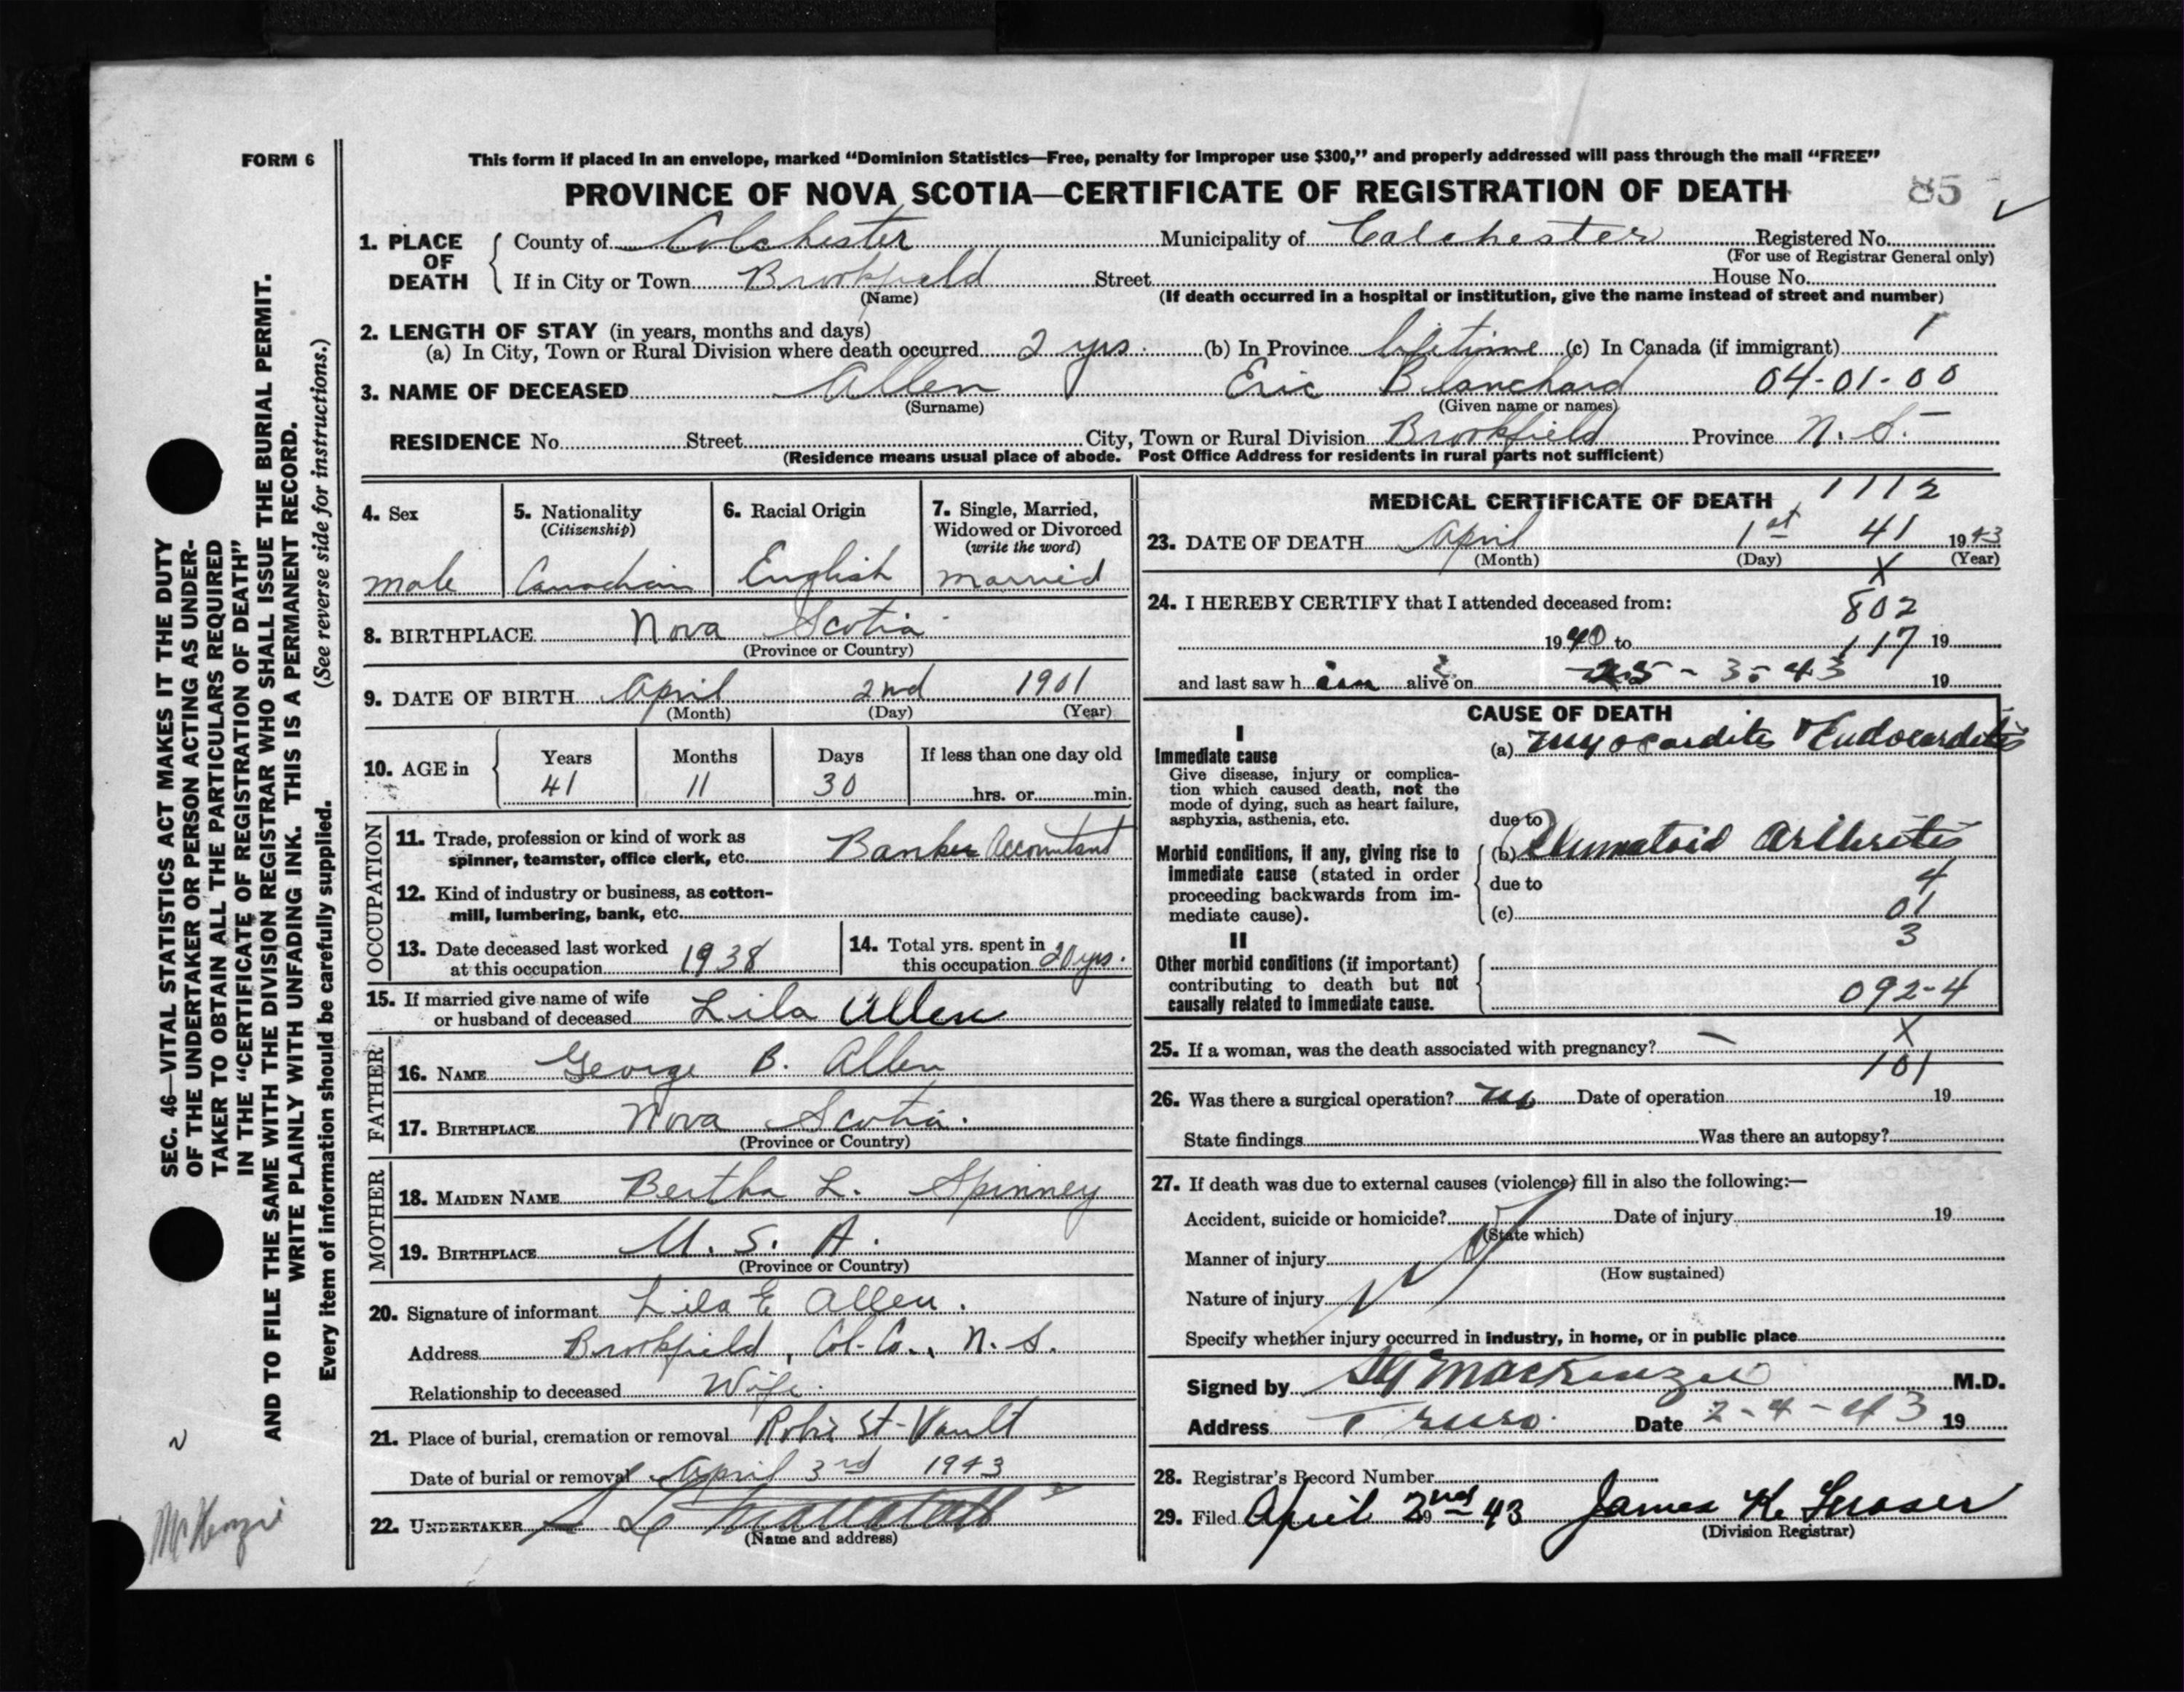 FORM 6
This form if placed in an envelope, marked "Dominion Statistics—Free, penalty for improper use $300," and properly addressed will pass through the mail "FREE"
PROVINCE OF NOVA SCOTIA—CERTIFICATE OF REGISTRATION OF DEATH 85
1. PLACE OF DEATH County of Colchester Municipality of Colchester Registered No.
(For use of Registrar General only)
If in City or Town Brookfield Street House No.
(Name) (If death occurred in a hospital or institution, give the name instead of street and number)
2. LENGTH OF STAY (in years, months and days) 1
(a) In City, Town or Rural Division where death occurred 2 yrs. (b) In Province lifetime (c) In Canada (if immigrant)
3. NAME OF DECEASED Allen Eric Blanchard 04-01-00
(Surname) (Given name or names)
RESIDENCE No. Street City, Town or Rural Division Brookfield Province N. S.
(Residence means usual place of abode. Post Office Address for residents in rural parts not sufficient)
4. Sex
male
5. Nationality
(Citizenship)
Canadian
6. Racial Origin
English
7. Single, Married,
Widowed or Divorced
(write the word)
married
8. BIRTHPLACE Nova Scotia
(Province or Country)
9. DATE OF BIRTH April 2nd 1901
(Month) (Day) (Year)
10. AGE in Years Months Days If less than one day old
41 11 30 hrs. or min.
OCCUPATION
11. Trade, profession or kind of work as
spinner, teamster, office clerk, etc. Banker Accountant
12. Kind of industry or business, as cotton-
mill, lumbering, bank, etc.
13. Date deceased last worked
at this occupation 1938
14. Total yrs. spent in
this occupation 20 yrs.
15. If married give name of wife
or husband of deceased Lila Allen
FATHER
16. NAME George B. Allen
17. BIRTHPLACE Nova Scotia.
(Province or Country)
MOTHER
18. MAIDEN NAME Bertha L. Spinney
19. BIRTHPLACE U. S. A.
(Province or Country)
20. Signature of informant Lila E Allen.
Address Brookfield, Col. Co., N. S.
Relationship to deceased Wife.
21. Place of burial, cremation or removal Robie St-Vault
Date of burial or removal April 3rd 1943
22. UNDERTAKER
(Name and address)
MEDICAL CERTIFICATE OF DEATH 1112
23. DATE OF DEATH April 1st 41 1943
(Month) (Day) (Year)
X
24. I HEREBY CERTIFY that I attended deceased from: 802
1940 to 117 19
and last saw him alive on 25-3-43 19
CAUSE OF DEATH
I
Immediate cause
Give disease, injury or complica-
tion which caused death, not the
mode of dying, such as heart failure,
asphyxia, asthenia, etc.
(a) Myocarditis & Endocarditis
due to
Morbid conditions, if any, giving rise to
immediate cause (stated in order
proceeding backwards from im-
mediate cause).
(b) Rheumatoid Arthritis
due to 4
(c) 01
3
II
Other morbid conditions (if important)
contributing to death but not
causally related to immediate cause.
092-4
X
25. If a woman, was the death associated with pregnancy? —
101
26. Was there a surgical operation? no Date of operation 19
State findings Was there an autopsy?
27. If death was due to external causes (violence) fill in also the following:—
Accident, suicide or homicide? Date of injury 19
(State which)
Manner of injury
(How sustained)
Nature of injury
Specify whether injury occurred in industry, in home, or in public place
Signed by MacKenzie M.D.
Address Truro. Date 2-4-43 19
28. Registrar's Record Number
29. Filed April 2nd 1943 James K. Fraser
(Division Registrar)
SEC. 46—VITAL STATISTICS ACT MAKES IT THE DUTY
OF THE UNDERTAKER OR PERSON ACTING AS UNDER-
TAKER TO OBTAIN ALL THE PARTICULARS REQUIRED
IN THE "CERTIFICATE OF REGISTRATION OF DEATH"
AND TO FILE THE SAME WITH THE DIVISION REGISTRAR WHO SHALL ISSUE THE BURIAL PERMIT.
WRITE PLAINLY WITH UNFADING INK. THIS IS A PERMANENT RECORD.
Every item of information should be carefully supplied. (See reverse side for instructions.)
McKenzie